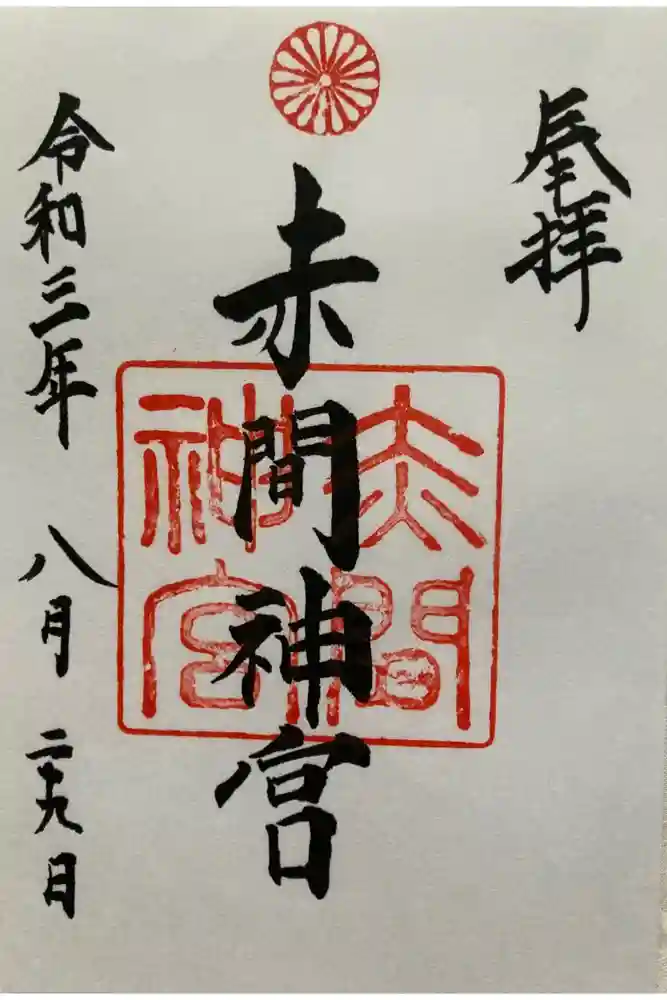 奉拝
赤間神宮
赤間神宮
令和三年 八月 二十九日